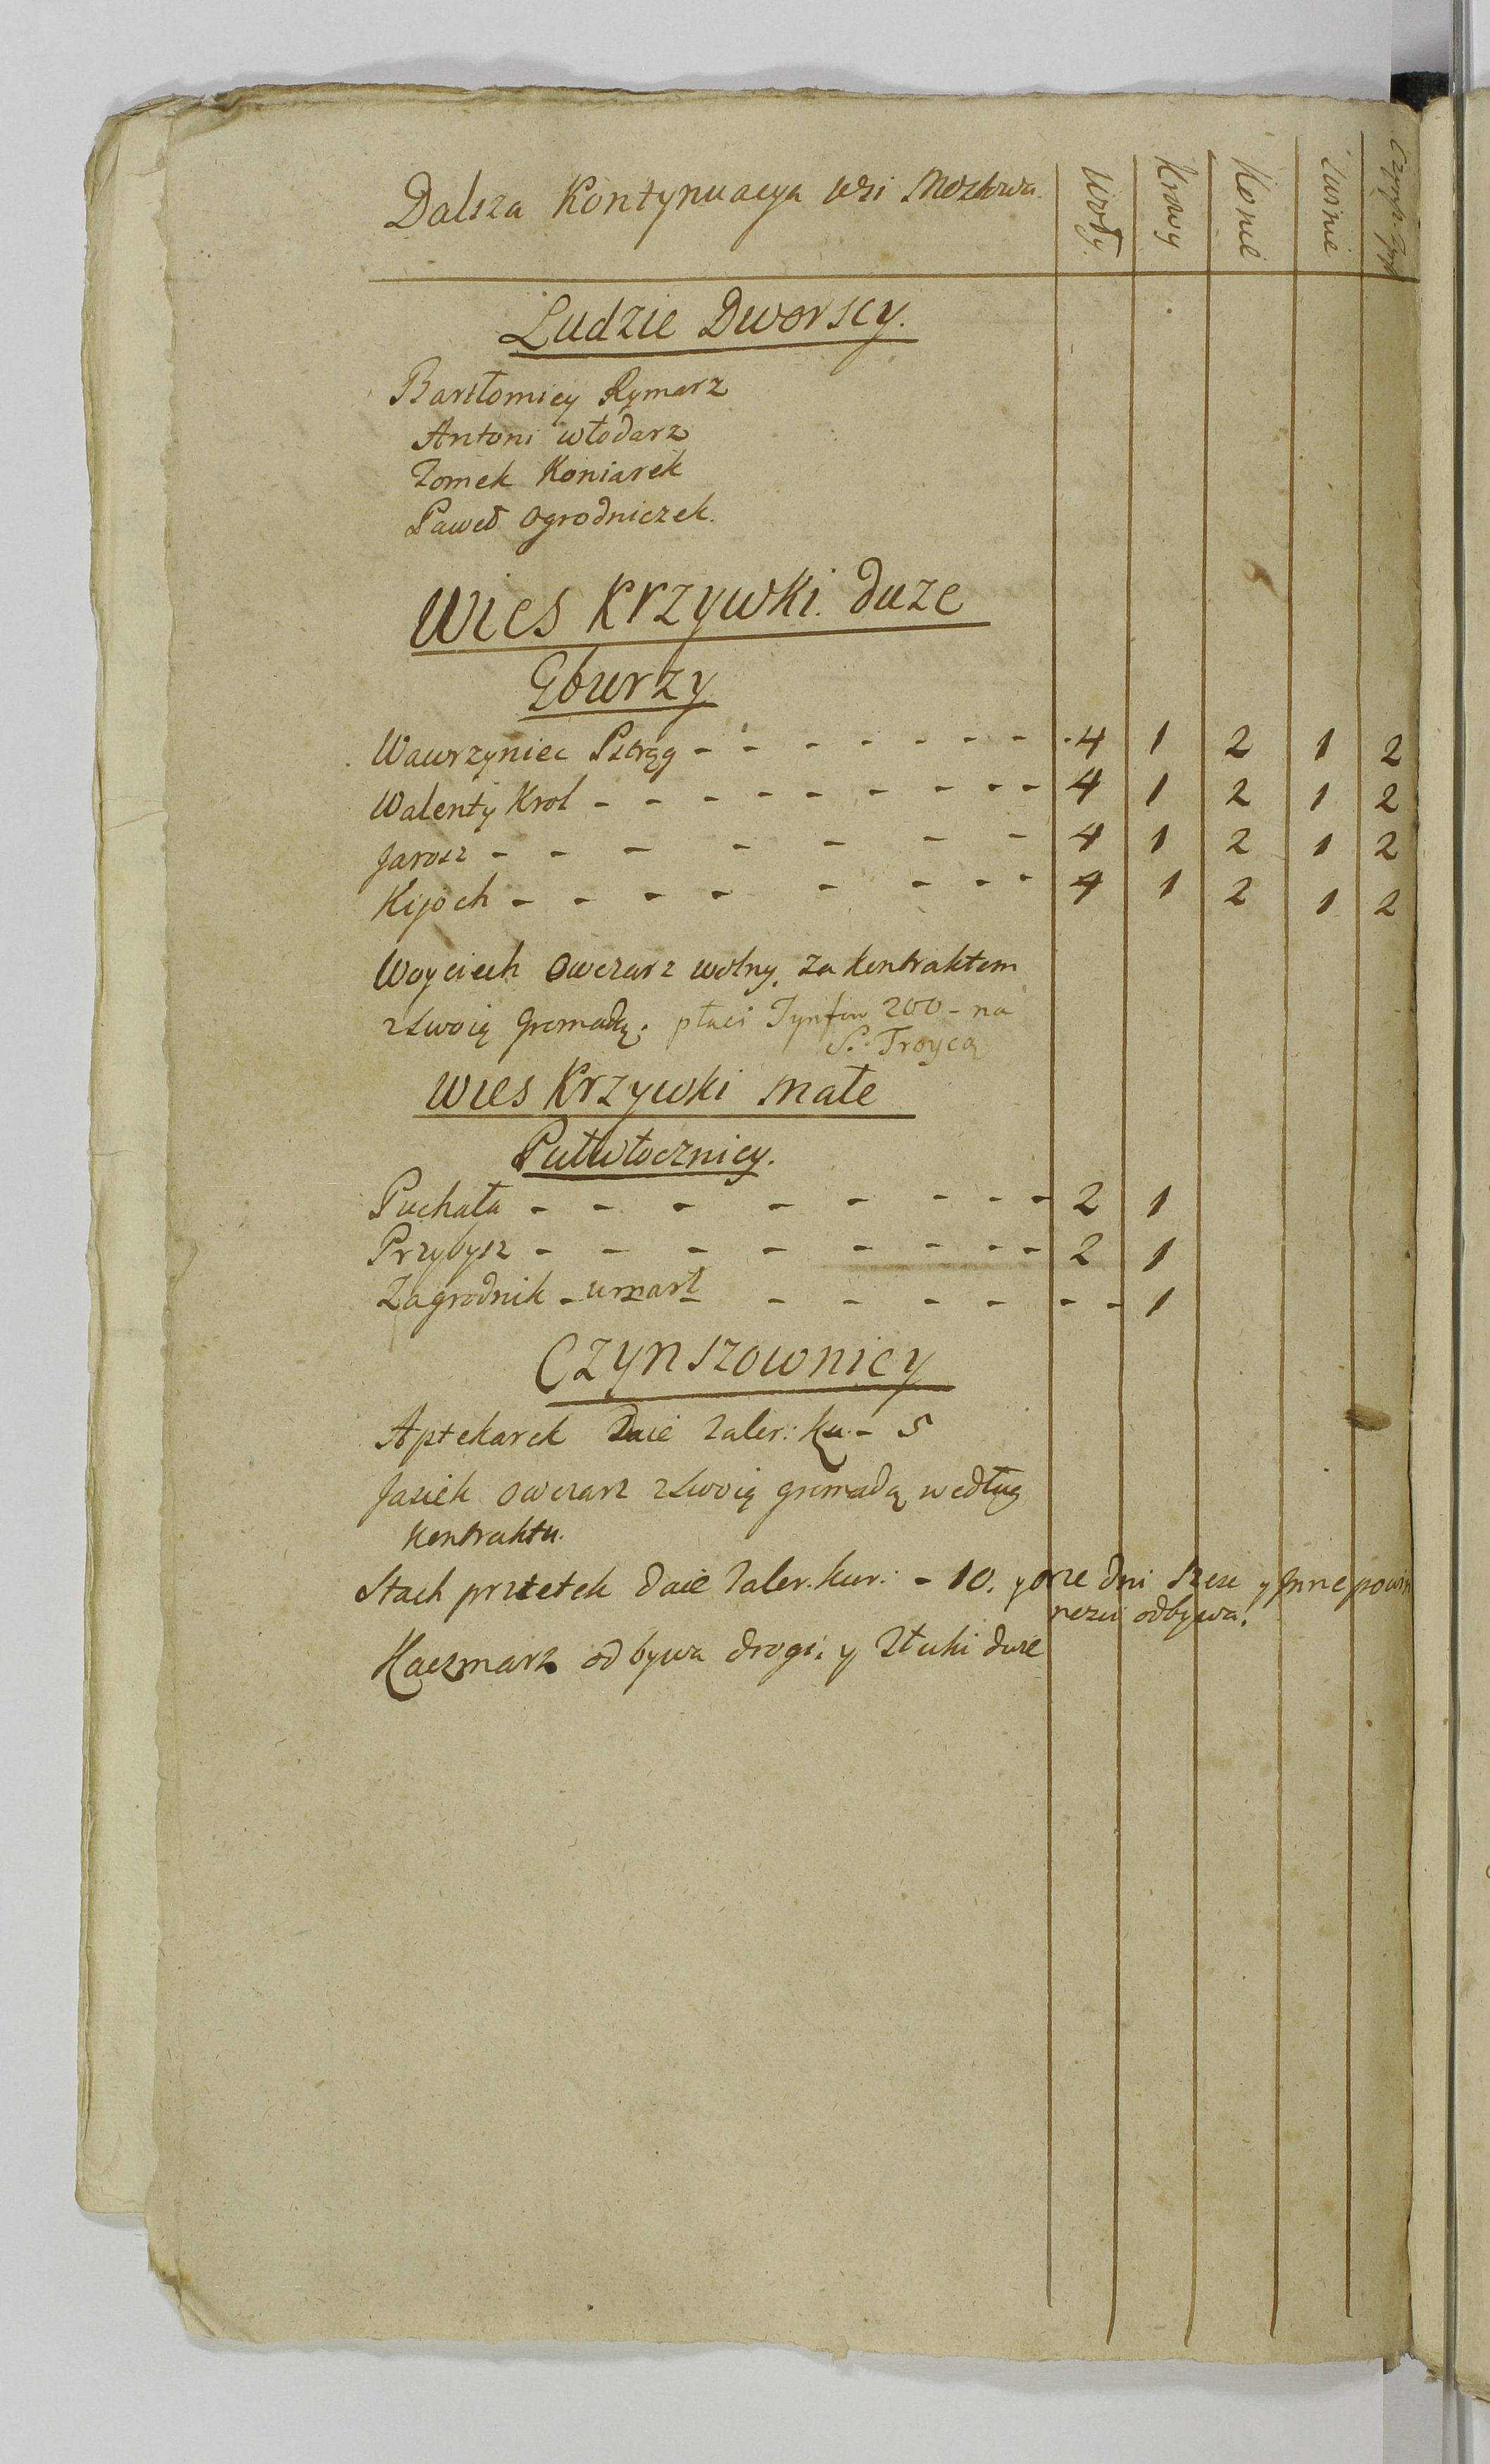 Dalsza Kontynuacya wsi
Woły. Krowy Konie Swinie
Ludzie Dworscy.
Bartłomiey Rymarz
Antoni włodarz
Tomek Koniarek
Paweł Ogrodniczek.
Wies Krzywki duze
Gburzy
Wawrzyniec Pstrąg - - - - - - - 4 1 2 1 2
Walenty Krol - - - - - - - - - 4 1 2 1 2
Jarosz - - - - - - - 4 1 2 1 2
Kijoch - - - - - - - - 4 1 2 1 2
Woyciech Owczarz wolny za kontraktem
z swoią Gromadą; płaci Tynfow 200 - na
S. Troycą
Wies Krzywki Małe
Pułwłocznicy.
Puchała - - - - - - - - 2 1
Przybysz - - - - - - - - 2 1
Zagrodnik - umarł - - - - - - - 1
Czynszownicy
Aptekarek Daie Taler: Ku - 5
Jasiek owczarz z swoią gromadą według
Kontraktu.
Stach daie Taler. kur: - 10. y orze dni szesc y Inne powin
odbywa.
Kaczmarz odbywa drogi, y